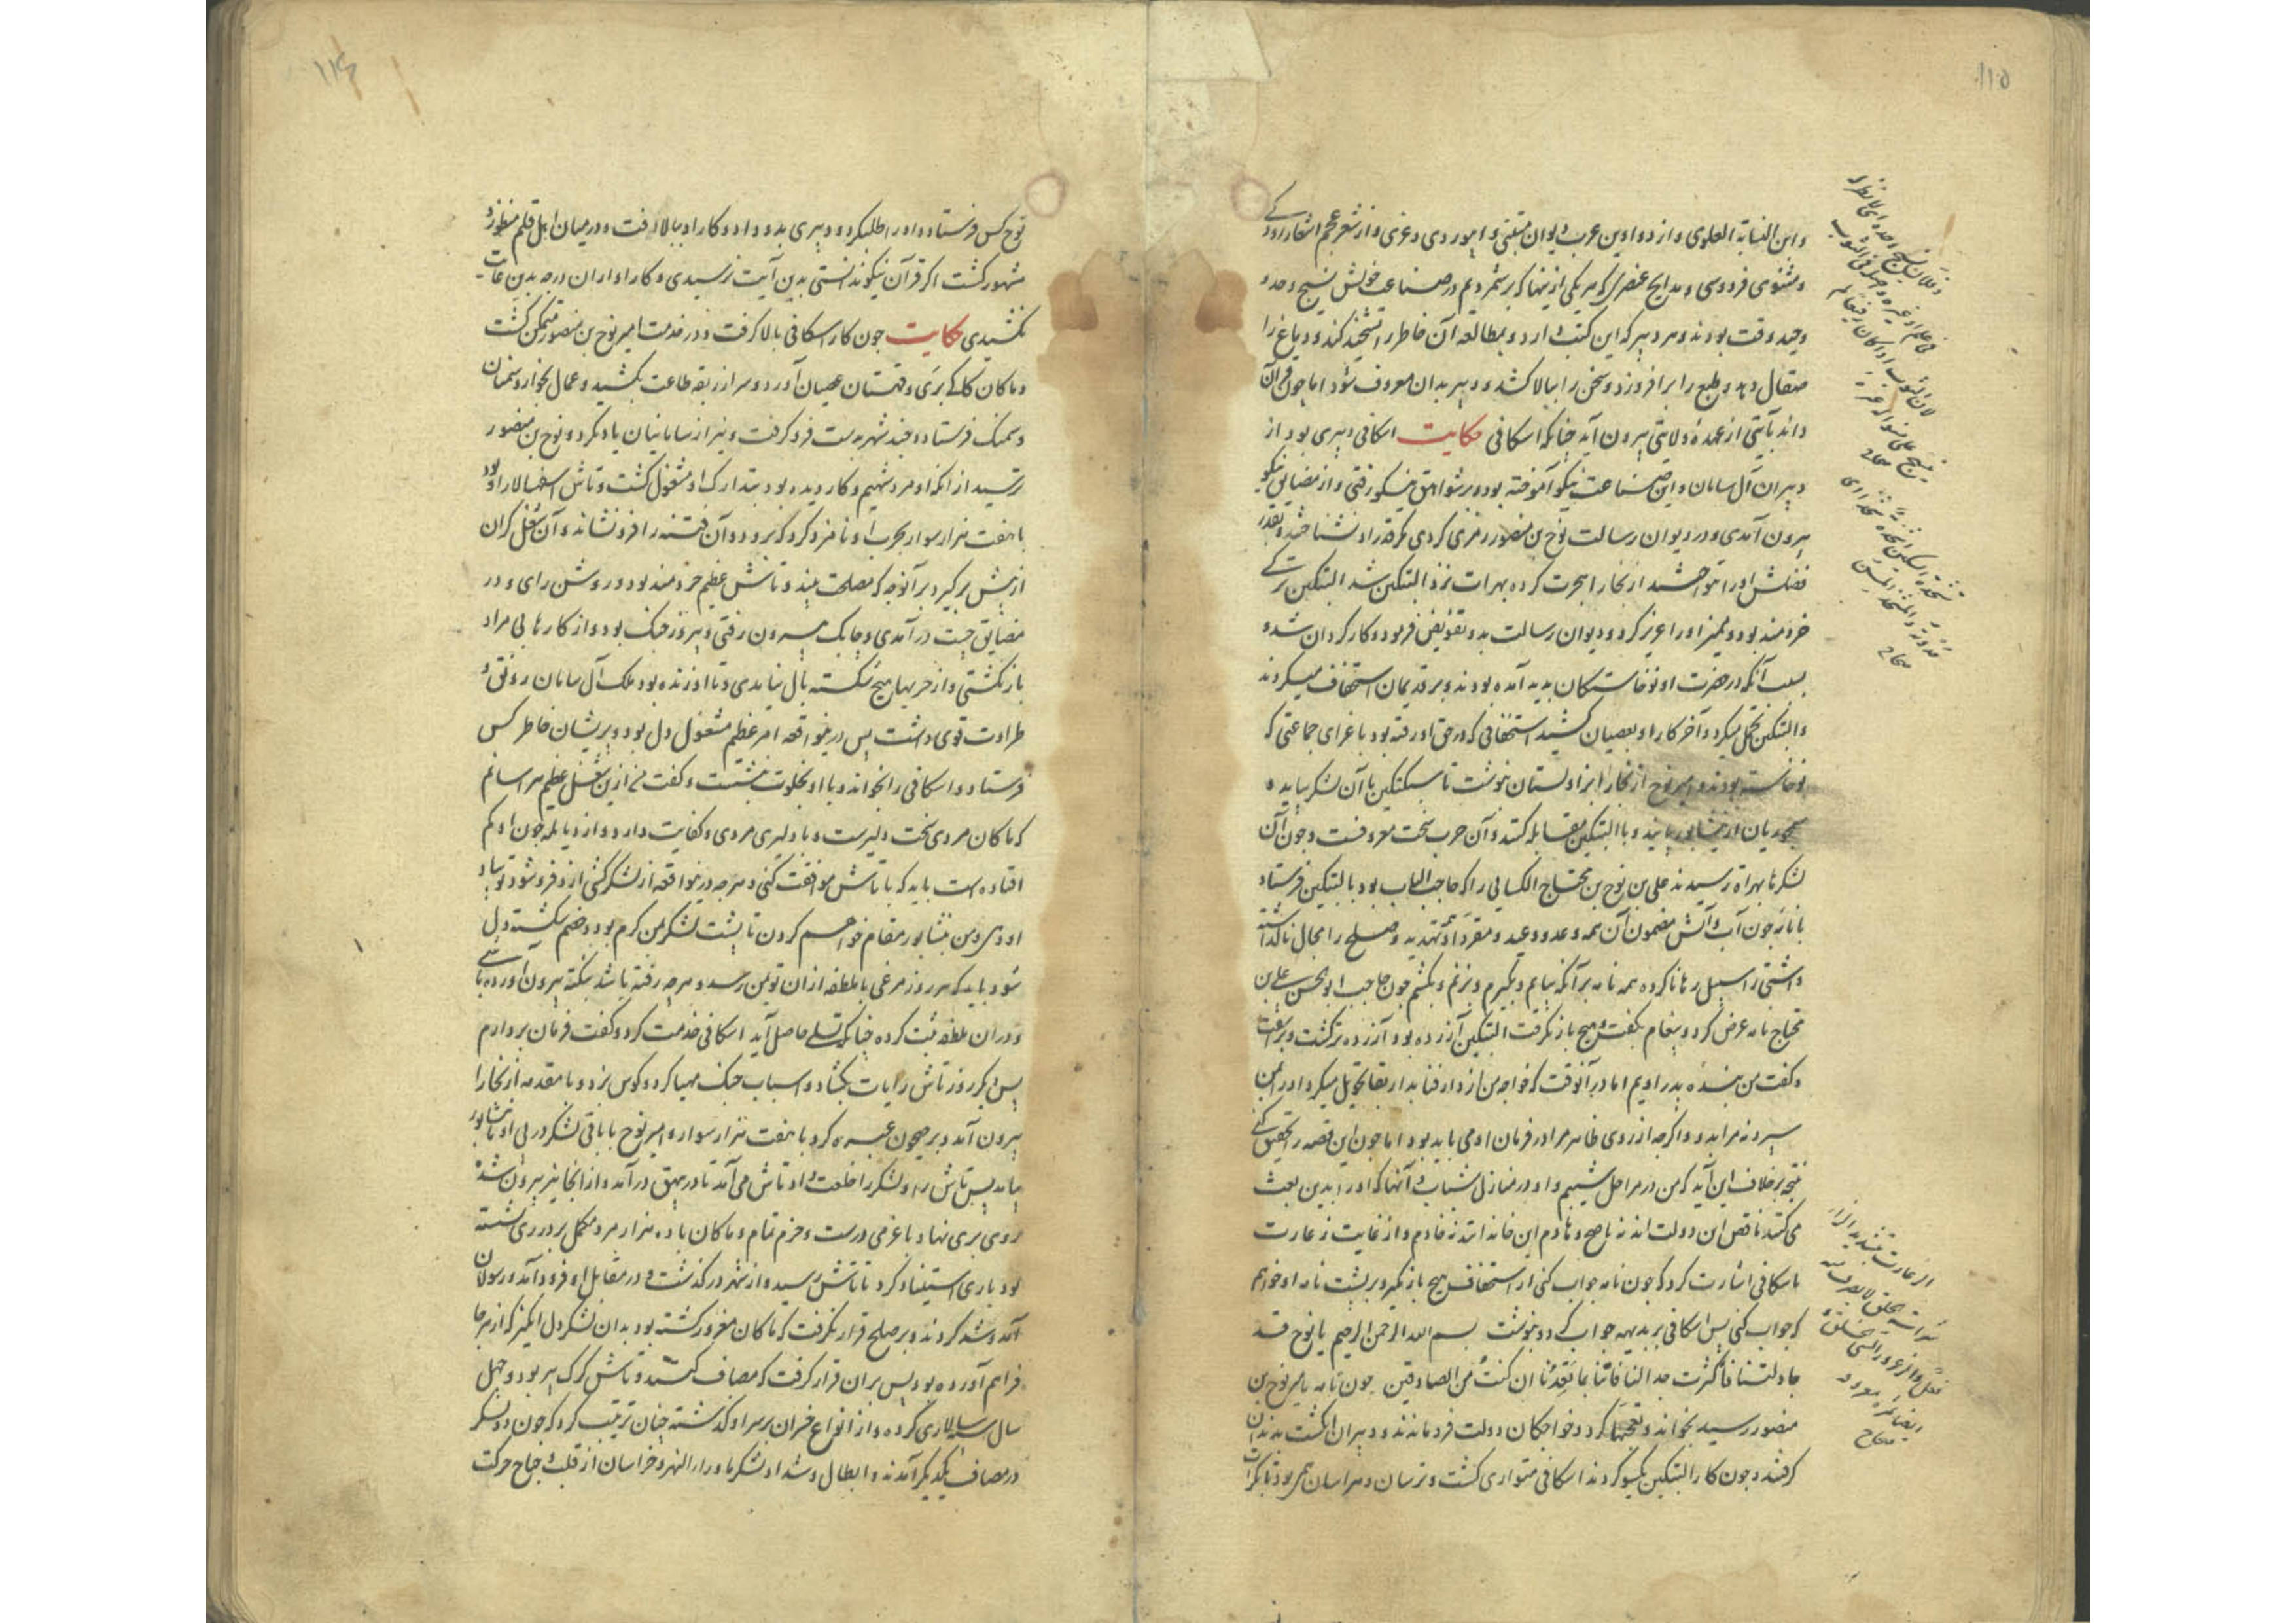 ۱۱۵
و ابن النسابة العلوی و از دواوین عرب دیوان متنبی و ابیوردی و غزی و از شعر عجم اشعار رودکی
و مثنوی فردوسی و مدایح عنصری که هر یکی ازینها که برشمردیم در صناعت خویش نسیج وحده و
وحید وقت بودند و هر دبیر که این کتب دارد و بمطالعه آن خاطر را تشحیذ کند و دماغ را
صقال دهد و طبع را برافروزد و سخن را ببالا کشد و دبیر بدان معروف شود اما چون قرآن
داند بآیتی از عهده ولایتی بیرون آید چنانکه اسکافی حکایت اسکافی دبیری بود از
دبیران آل سامان و این صناعت نیکو آموخته بود و بر شواهق نیکو رفتی و از مضایق نیکو
بیرون آمدی و در دیوان رسالت نوح بن منصور محرری کردی مگر قدر او نشناختند و بقدر
فضلش او را ننواختند از بخارا هجرت کرده بهرات نزد البتکین شد البتکین ترکی
خردمند بود و ممیز او را عزیز کرد و دیوان رسالت بدو تفویض فرمود و کار گردان شد و
بسبب آنکه در حضرت او نوخاستگان پدید آمده بودند و بر قدیمان استخفاف میکردند
و البتکین تحمل میکرد و آخر کار او بعصیان کشید استخفافی که در حق او رفته بود باغرای جماعتی که
نوخاسته بودند و امیر نوح از بخارا بزاولستان نوشت تا سبکتکین با آن لشکر بیاید و
سیمجوریان از نیشابور بیایند و با البتکین مقابله کنند و آن حرب سخت معروفست و چون آن
لشکرها بهراة رسیدند علی بن نوح بن محتاج الکسانی را که حاجب الباب بود بالبتکین فرستاد
با نامه چون آب و آتش مضمون آن همه وعد و وعید و مقرر او تهدید و صلح را مجال ناگذاشته
و آشتی را سبیل رها ناکرده همه نامه بر آنکه بیایم و بگیرم و بزنم و بکشم چون حاجب ابوالحسن علی بن
محتاج نامه عرض کرد و پیغام بگفت و هیچ باز نگرفت البتکین آزرده بود آزرده‌تر گشت و برآشفت
و گفت من بنده پدر اویم اما در آنوقت که خواجه من از دار فنا بدار بقا تحویل میکرد او را بمن
سپرد نه مرا بدو و اگرچه از روی ظاهر مرا در فرمان او می باید بود اما چون این قصه را تحقیق کنی
نتیجه بر خلاف این آید که من در مراحل شیبم و او در منازل شباب و آنها که او را بدین بعث
می کنند ناقض این دولت اند نه ناصح و هادم این خاندانند نه خادم و از غایت زعارت
باسکافی اشارت کرد که چون نامه جواب کنی از استخفاف هیچ باز مگیر و بر پشت نامه او خواهم
که جواب کنی پس اسکافی بر بدیهه جواب کرد و بنوشت بسم الله الرحمن الرحیم یا نوح قد
جادلتنا فأکثرت جدالنا فأتنا بما تعدنا ان کنت من الصادقین چون نامه بامیر نوح بن
منصور رسید بخواند و تعجبها کرد و خواجگان دولت فروماندند و دبیران انگشت بدندان
گرفتند و چون کار البتکین یکسو کردند اسکافی متواری گشت و ترسان و هراسان همی بود تا یک کرات
صحاح
صحاح
صحاح
۱۱۶
نوح کس فرستاد و او را طلب کرد و دبیری بدو داد و کار او ببالا رفت و در میان اهل قلم منظور و
مشهور گشت اگر قرآن نیکو ندانستی بدین آیت نرسیدی و کار او از ان درجه بدین غایت
نکشیدی حکایت چون کار اسکافی بالا گرفت و در خدمت امیر نوح بن منصور متمکن گشت
و ماکان کاکی بری و قهستان عصیان آورد و سر از ربقه طاعت بکشید و عمال بخوار و سمنان
و سمنک فرستاد و چند شهر بدست فرو گرفت و نیز از سامانیان یاد نکرد و نوح بن منصور
بترسید از آنکه او مرد شهیم و کاردیده بود بتدارک او مشغول گشت و تاش اسفهسالار او بود
با هفت هزار سوار بحرب او نامزد کرد که برود و آن فتنه را فرو نشاند و آن شغل گران
از پیش برگیرد بر آنوجه که مصلحت بیند و تاش عظیم خردمند بود و روشن رای و در
مضایق چست درآمدی و چابک بیرون رفتی و پیروز جنگ بود و از کارها بی مراد
بازنگشتی و از حربها هیچ شکسته بال نیامدی و تا او زنده بود ملک آل سامان رونق و
طراوت قوی داشت پس درین واقعه امیر عظیم مشغول دل بود و پریشان خاطر کس
فرستاد و اسکافی را بخواند و با او بخلوت بنشست و گفت من ازین شغل عظیم هراسانم
که ماکان مردی سخت دلیرست و با دلیری مردی و کفایت دارد و از دیالمه چون او کم
افتاده است باید که با تاش موافقت کنی و هرچه درین واقعه از لشکرکشی ازو فرو شود تو بیاد
او دهی و من بنشابور مقام خواهم کردن تا پشت لشکر بمن گرم بود و خصم شکسته دل
شود باید که هر روز مرغی با ملطفه از ان تو بمن رسد و هرچه رفته باشد نکته بیرون آورده باشی
و در ان ملطفه ثبت کرده چنانکه تسلی حاصل آید اسکافی خدمت کرد و گفت فرمان بردارم
پس دیگر روز تاش رایات بگشاد و اسباب جنگ مهیا کرد و کوس بزد و بر مقدمه از بخارا
بیرون آمد و بر جیحون عبره کرد با هفت هزار سوار و امیر نوح با باقی لشکر در پی او تا نشابور
بیامد پس تاش را و لشکر را خلعت داد و تاش می آمد تا در بیهق درآمد و از آنجا نیز بیرون شد و
روی بری نهاد با عزمی درست و حزم تمام و ماکان با ده هزار مرد مکمل بر در ری نشسته
بود بری استناد کرد تا تاش رسید و از شهر درگذشت و در مقابل او فرود آمد و رسولان
آمد و شد کردند و بر صلح قرار نگرفت که ماکان مغرور گشته بود بدان لشکر دل انگیز که از هر جا
فراهم آورده بود پس بر ان قرار گرفت که مصاف کنند و تاش گرگ پیر بود و چهل
سال سپهسالاری کرده و از انواع خسران بر سر او گذشته چنان ترتیب کرد که چون دو لشکر
در مصاف یکدیگر آمدند و ابطال و شداد لشکر ماوراء النهر و خراسان از قلب و جناح حرکت